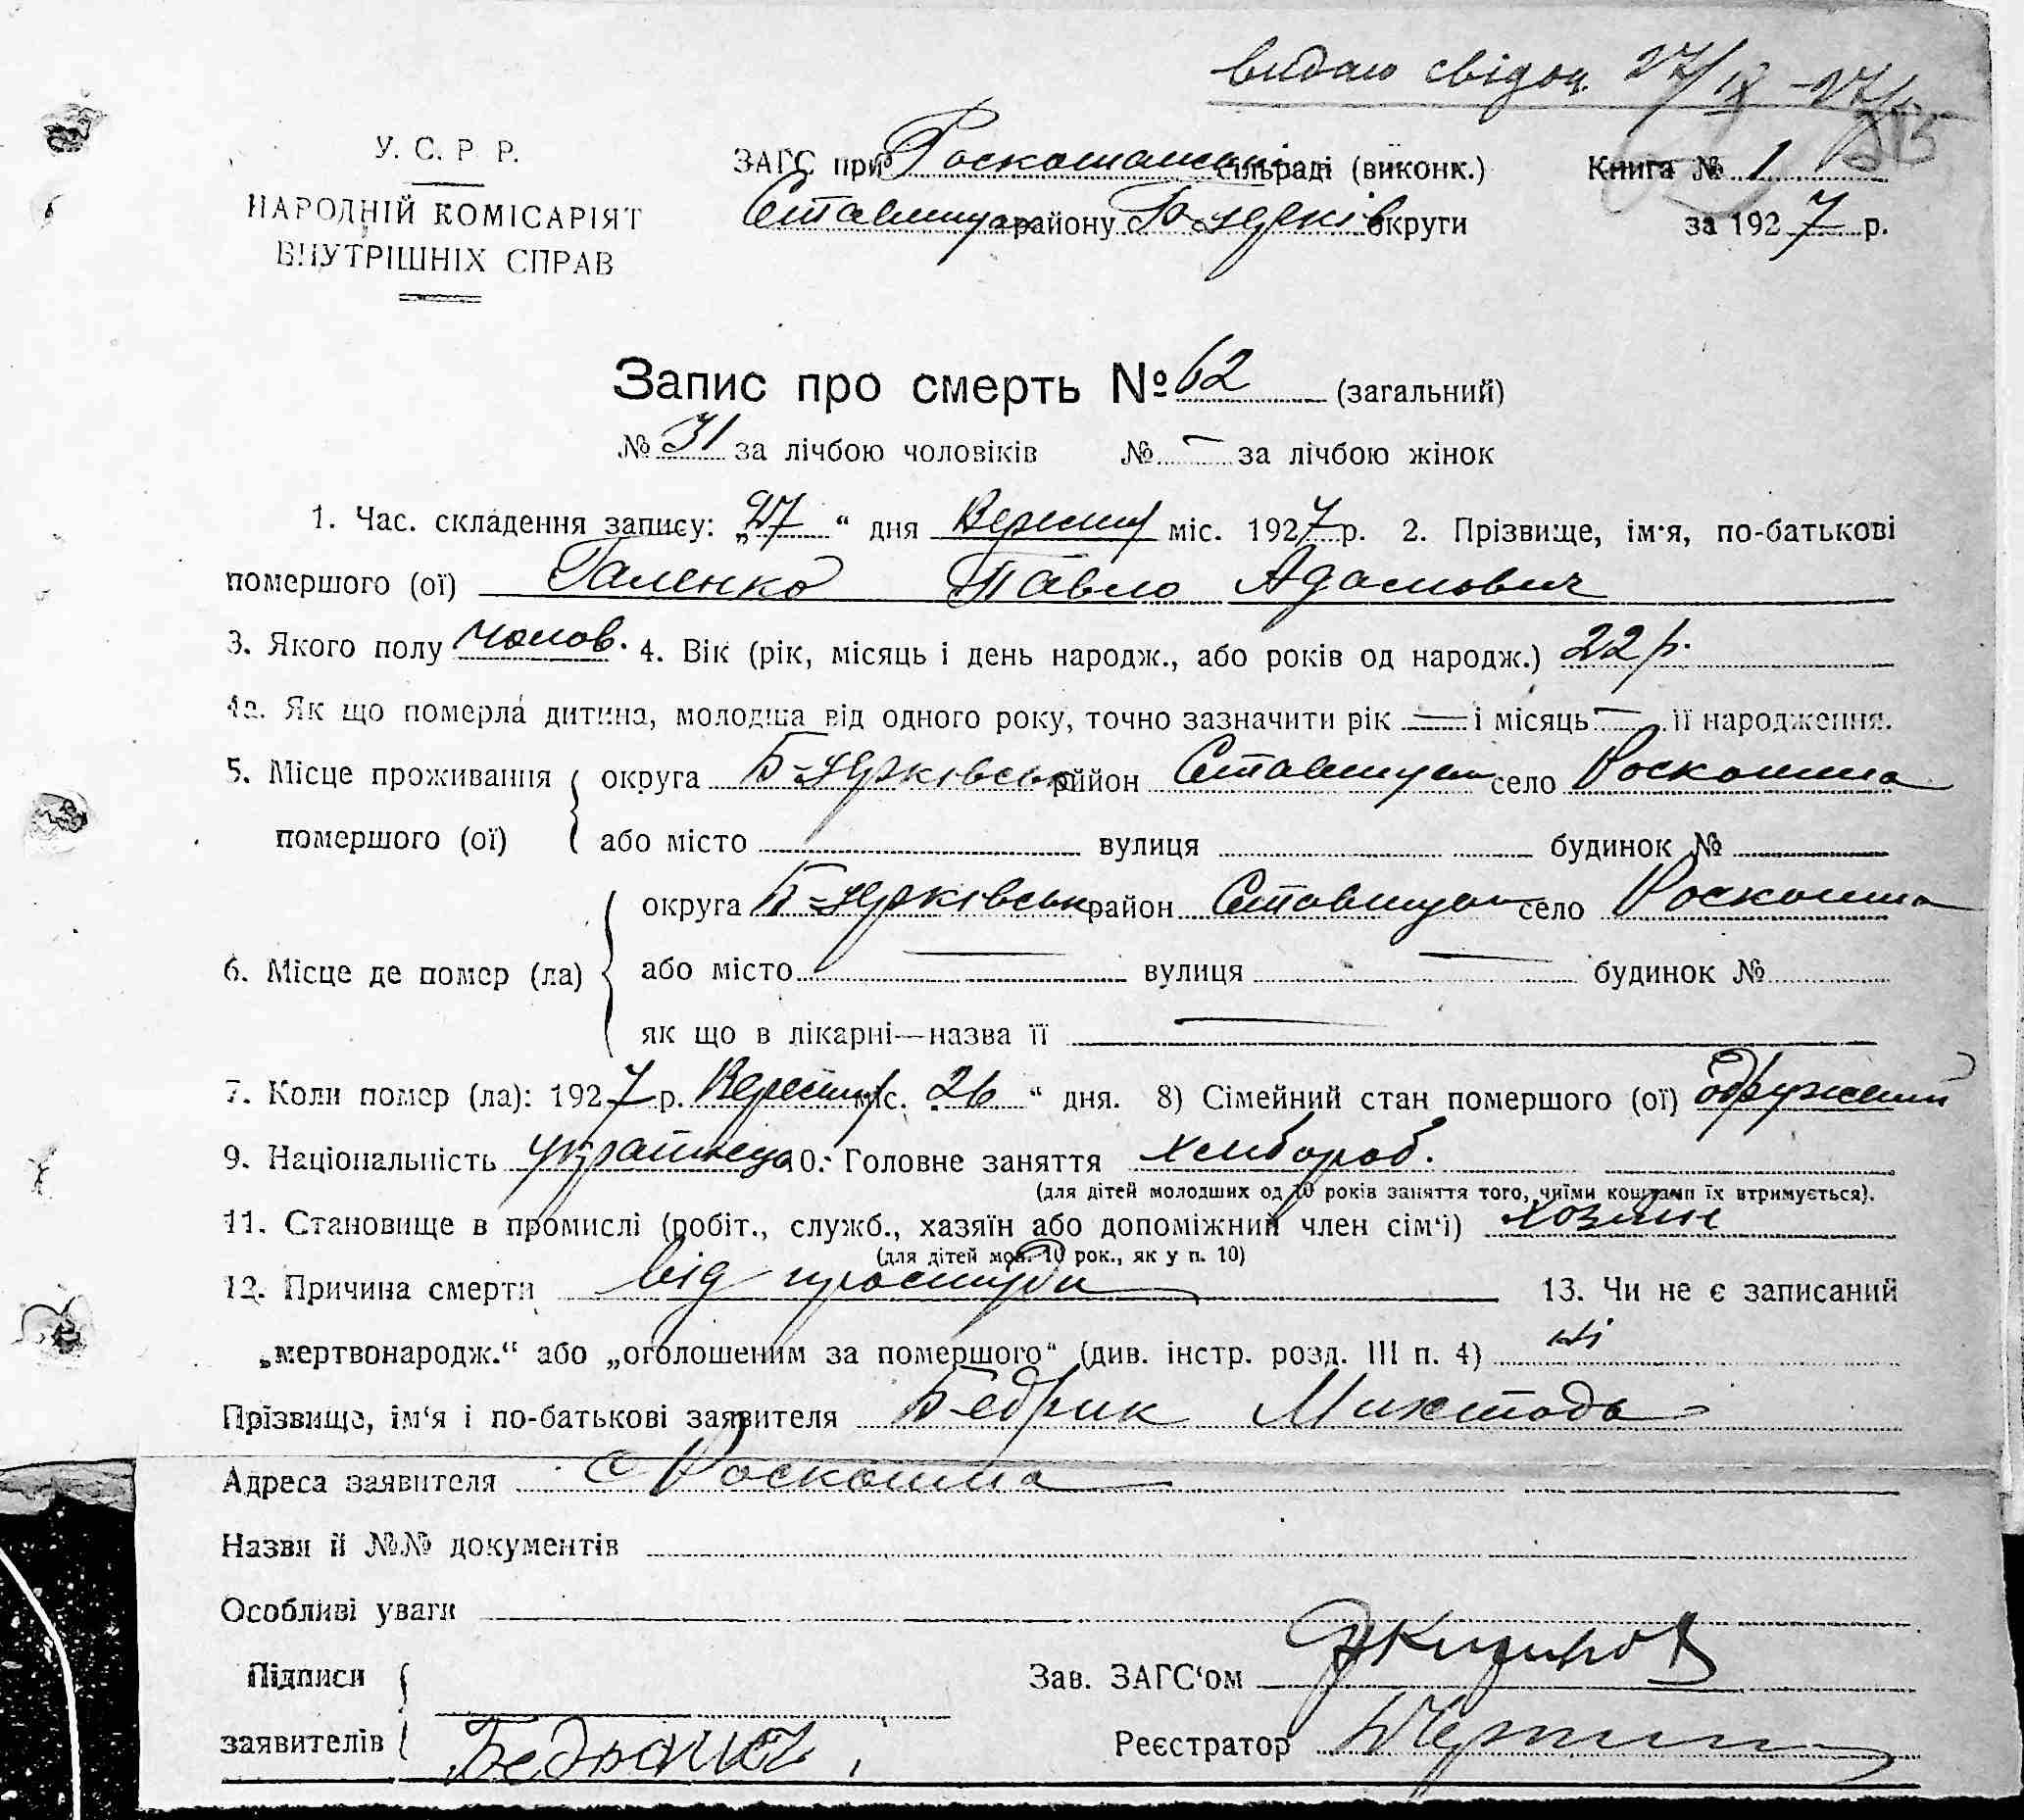 видано свідоц. 27/IX – 27
У. С. Р. Р.
НАРОДНІЙ КОМІСАРІЯТ
ВНУТРІШНІХ СПРАВ
ЗАГС при Роскошанськ сільраді (виконк.) Книга № 1
Ставищан району Б-Церків округи за 1927 р.
Запис про смерть № 62 (загальний)
№ 31 за лічбою чоловіків № — за лічбою жінок
1. Час. складення запису: „27“ дня Вересня міс. 1927 р. 2. Прізвище, ім'я, по-батькові
помершого (ої) Галенко Павло Адамович
3. Якого полу чолов. 4. Вік (рік, місяць і день народж., або років од народж.) 22 р.
4а. Як що померла дитина, молодша від одного року, точно зазначити рік — і місяць — її народження.
5. Місце проживання округа Б-Церківськ район Ставищан село Роскошна
помершого (ої) або місто вулиця будинок №
округа Б-Церківськ район Ставищан село Роскошна
6. Місце де помер (ла) або місто — вулиця — будинок №
як що в лікарні—назва її —
7. Коли помер (ла): 1927 р. Вересня міс. 26 “ дня. 8) Сімейний стан помершого (ої) одружений
9. Національність українець 10. Головне заняття хлибороб.
(для дітей молодших од 10 років заняття того, чиїми коштами їх втримується).
11. Становище в промислі (робіт., служб., хазяїн або допоміжний член сім'ї) хозяін
(для дітей мол. 10 рок., як у п. 10)
12. Причина смерти від простуди 13. Чи не є записаний
„мертвонародж.“ або „оголошеним за помершого“ (див. інстр. розд. III п. 4) ні
Прізвище, ім'я і по-батькові заявителя Бедрик
Адреса заявителя с Роскошна
Назви й №№ документів
Особливі уваги
Підписи Зав. ЗАГС'ом
заявителів Реєстратор